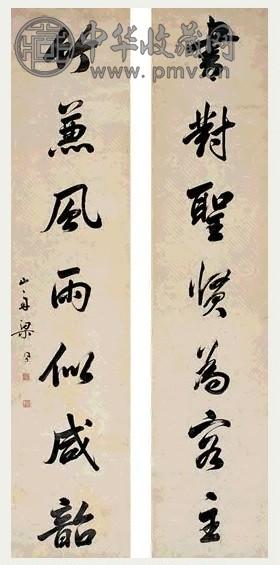 中华收藏网
www.pmv.cn
書對聖賢為客主
竹蒹風雨似咸韶
山舟梁